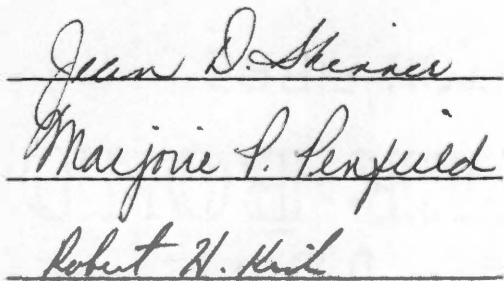 Jean D. Skinner
Marjorie P. Penfield
Robert H. Kirk